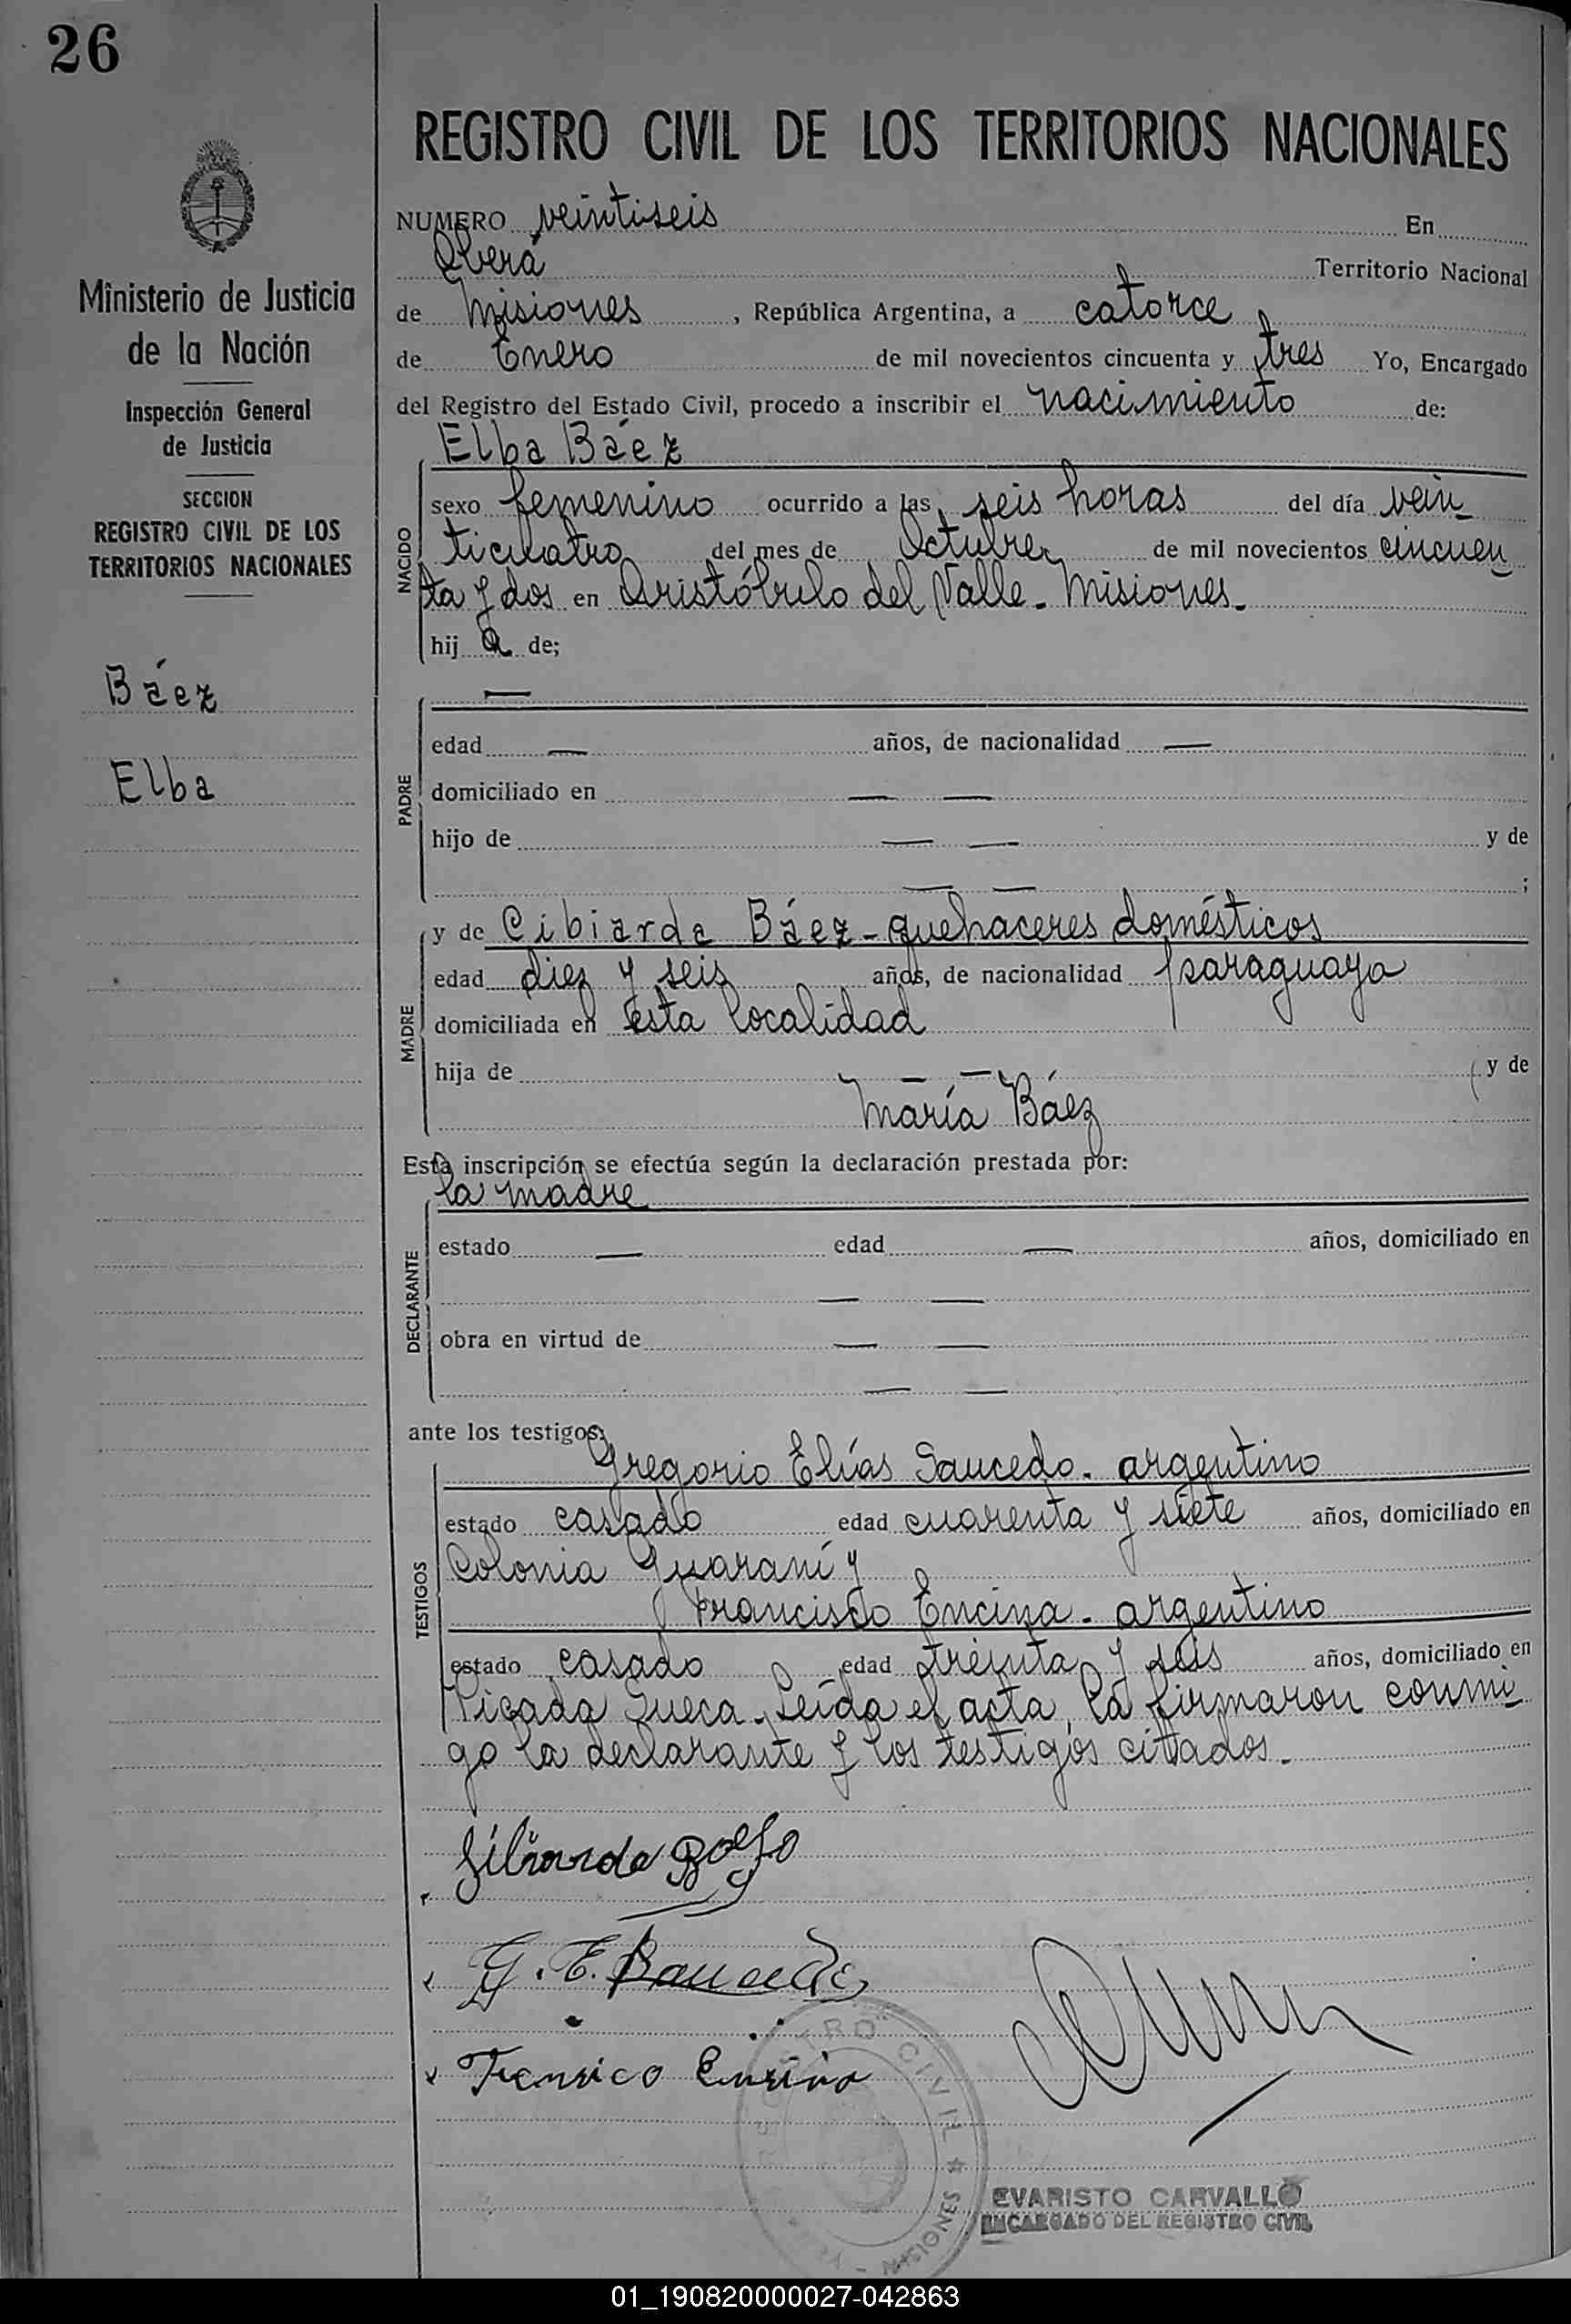 26
Ministerio de Justicia
de la Nación
Inspección General
de Justicia
SECCION
REGISTRO CIVIL DE LOS
TERRITORIOS NACIONALES
Báez
Elba
REGISTRO CIVIL DE LOS TERRITORIOS NACIONALES
NUMERO veintiseis En
Oberá Territorio Nacional
de Misiones , República Argentina, a catorce
de Enero de mil novecientos cincuenta y tres Yo, Encargado
del Registro del Estado Civil, procedo a inscribir el nacimiento de:
Elba Báez
NACIDO
sexo femenino ocurrido a las seis horas del día vein
ticuatro del mes de Octubre de mil novecientos cincuen
ta y dos en Aristóbulo del Valle - Misiones.
hij a de;
—
PADRE
edad — años, de nacionalidad —
domiciliado en — —
hijo de — — y de
— — ;
y de Cibiarda Báez - quehaceres domésticos
MADRE
edad diez y seis años, de nacionalidad paraguaya
domiciliada en esta localidad
hija de — — y de
María Báez
Esta inscripción se efectúa según la declaración prestada por:
la madre
DECLARANTE
estado — edad — años, domiciliado en
— —
obra en virtud de — —
— —
ante los testigos:
Gregorio Elías Saucedo - argentino
TESTIGOS
estado casado edad cuarenta y siete años, domiciliado en
Colonia Guaraní y
Francisco Encina - argentino
estado casado edad treinta y seis años, domiciliado en
Picada Sueca. Leída el acta, la firmaron conmi
go la declarante y los testigos citados.
G. E. Saucedo
REGISTRO CIVIL
MISIONES
EVARISTO CARVALLO
ENCARGADO DEL REGISTRO CIVIL
01_190820000027-042863